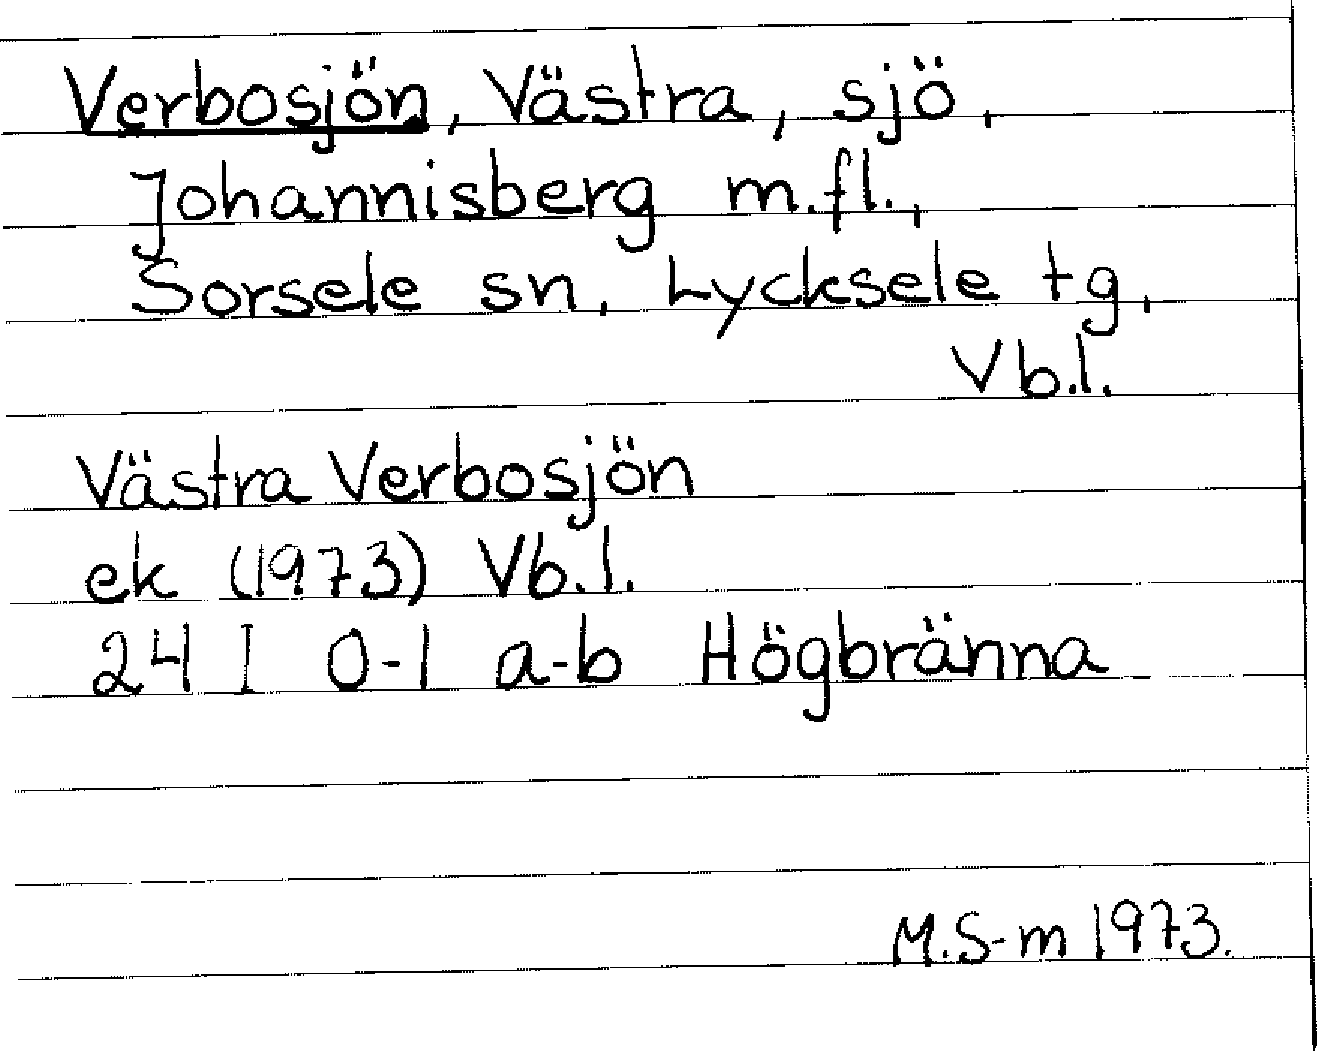 Verbosjön, Västra, sjö,
Johannisberg m.fl.,
Sorsele sn, Lycksele tg,
Vb.l.
Västra Verbosjön
ek (1973) Vb.l.
24 I 0-1 a-b Högbränna
M.S-m 1973.